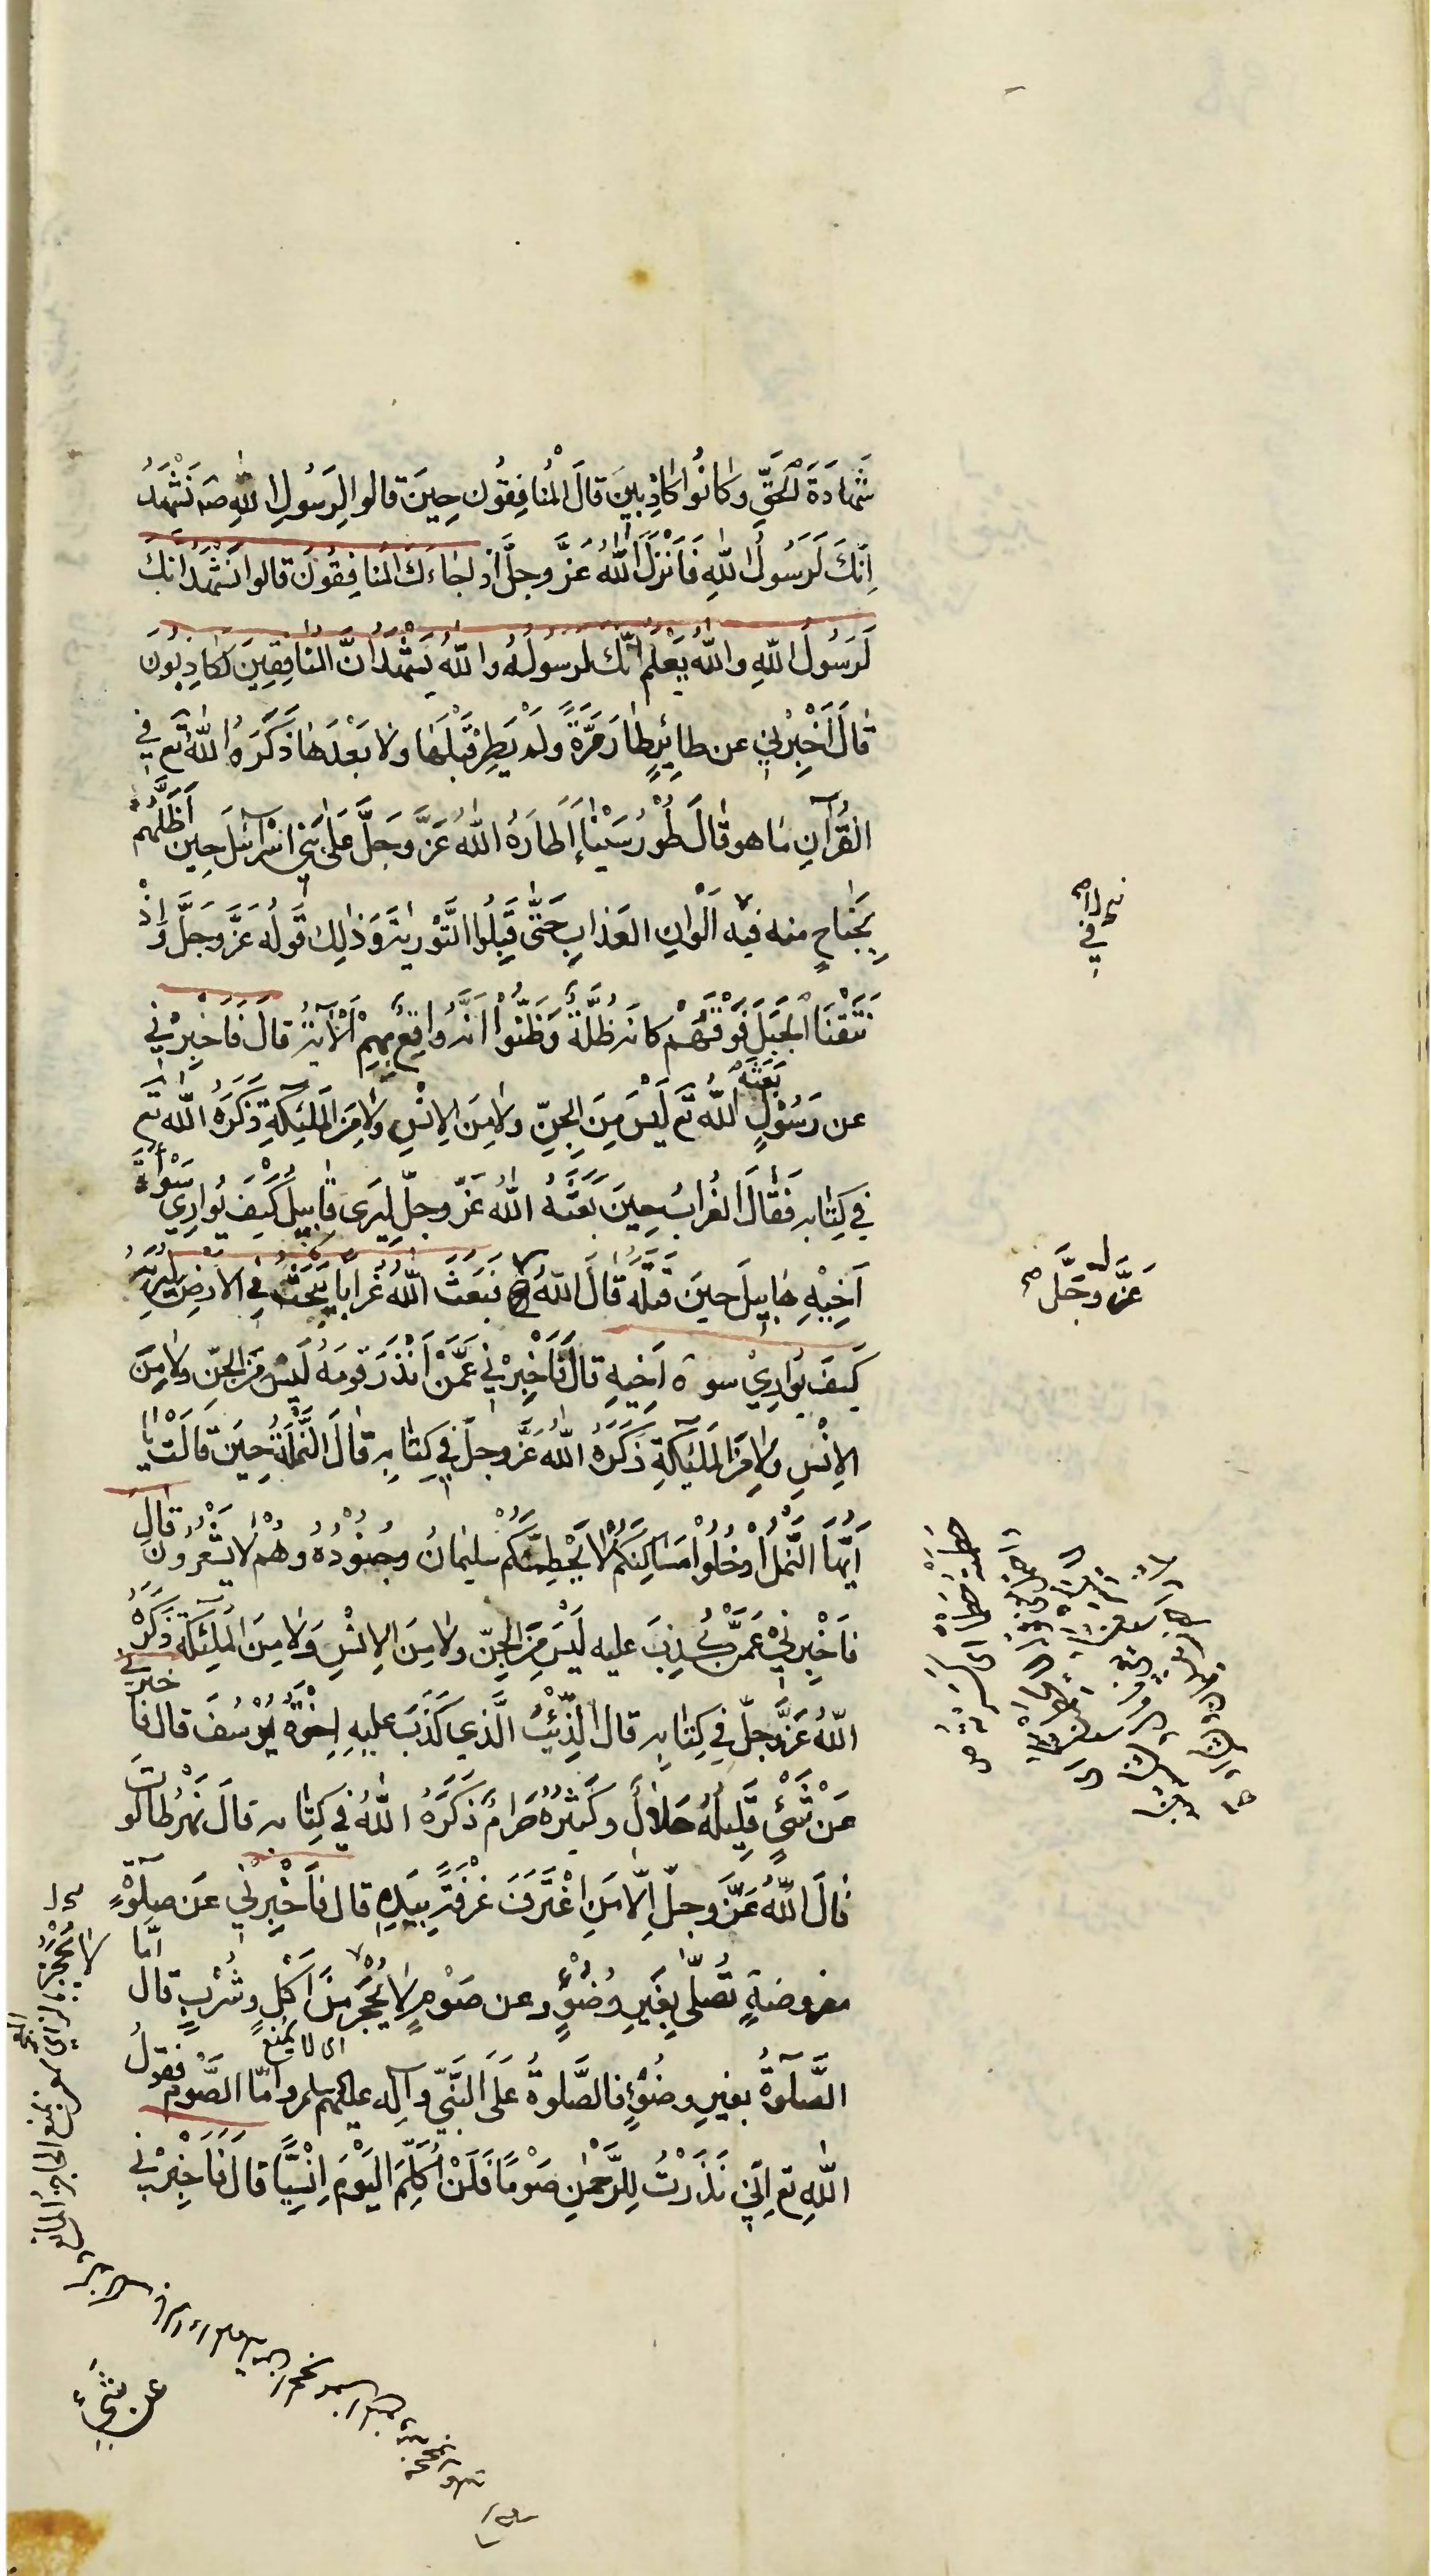 شَهَادَةَ الْحَقِّ وَكَانُوا كَاذِبِينَ قَالَ الْمُنَافِقُونَ حِينَ قالوا لِرَسُولِ اللّٰهِ صَ نَشْهَدُ
اِنَّكَ لَرَسُولُ اللّٰهِ فَاَنْزَلَ اللّٰهُ عَزَّ وجلَّ اِذا جَاءَكَ الْمُنَافِقُونَ قالوا نَشْهَدُ اِنَّكَ
لَرَسُولُ اللّٰهِ واللّٰهُ يَعْلَمُ اِنَّكَ لَرَسُولُهُ واللّٰهُ يَشْهَدُ اِنَّ الْمُنَافِقِينَ لَكَاذِبُونَ
قَالَ اَخْبِرْنِي عن طائِرٍ طَارَ مَرَّةً ولَمْ يَطِرْ قَبْلَهَا ولا بَعْدَهَا ذَكَرَهُ اللّٰهُ تَع فِي
الْقُرْآنِ مَا هو قَالَ طُورُ سَيْنَاءَ اَطَارَهُ اللّٰهُ عَزَّ وَجَلَّ عَلَى بَنِي اِسْرَآئيلَ حِينَ اَظَلَّهُمْ
بِجَنَاحٍ منه فيه اَلْوَانِ العَذَابِ حَتَّى قَبِلُوا التَّوْرٰيةَ وَذٰلِكَ قَوْلُه عَزَّ وَجَلَّ وَاِذْ
نَتَقْنَا الْجَبَلَ فَوْقَهُمْ كَانَّهُ ظُلَّةٌ وَظَنُّوا اَنَّهُ وَاقِعٌ بِهِمْ اَلْآيَةُ قالَ فَاَخْبِرْنِي
عن رَسُولٍ بَعَثَهُ اللّٰهُ تَع لَيْسَ مِنَ الْجِنِّ ولا مِنَ الاِنْسِ ولا مِنَ الْمَلٰئِكَةِ ذَكَرَهُ اللّٰه تَع
فِي كِتَابِهِ فَقَالَ الْغُرَابُ حِينَ بَعَثَهُ اللّٰهُ عَزَّ وجلّ لِيَرَى قَابِيلُ كَيْفَ يُوارِي سَوْأَةَ
اَخِيْهِ هَابِيلَ حِينَ قَتَلَهُ قَالَ اللّٰهُ فَبَعَثَ اللّٰهُ غُرَابًا يَبْحَثُ فِي الْاَرْضِ لِيُرِيَهُ
كَيْفَ يُوَارِيْ سوءة اَخِيهِ قالَ فَاَخْبِرْنِي عَمَّنْ اَنْذَرَ قومَهُ لَيْسَ مِنَ الجِنّ ولا مِنَ
الاِنْسِ ولا مِنَ الْمَلٰئِكَةِ ذَكَرَهُ اللّٰهُ عَزَّ وجلّ فِي كِتَابِهِ قَالَ النَّمْلَةُ حِينَ قَالَتْ يَا
اَيُّهَا النَّمْلُ ادْخُلُوا مَسَاكِنَكُمْ لَا يَحْطِمَنَّكُمْ سُلَيمَانُ وجُنُودُهُ وهُمْ لَا يَشْعُرُونَ قَالَ
فَاَخْبِرْنِي عَمَّنْ كُذِبَ عليه لَيْسَ مِنَ الْجِنّ ولا مِنَ الاِنْسِ وَلا مِنَ المَلٰئِكَةِ ذَكَرَهُ
اللّٰهُ عَزَّ وجلّ فِي كِتَابِهِ قالَ الذِّئْبُ الَّذي كَذَبَ عليهِ اِخْوَةُ يُوسُفَ قال فَاَخبرني
عَنْ شَيْءٍ قَلِيلُهُ حَلالٌ وكَثِيرُهُ حَرَامٌ ذَكَرَهُ اللّٰهُ فِي كِتَابِهِ قالَ نَهْرُ طَالُوتَ
قَالَ اللّٰهُ عَزَّ وجلّ اِلَّا مَنِ اغْتَرَفَ غُرْفَةً بِيَدِهِ قال فَاَخْبِرْنِي عَن صَلٰوةٍ
مفروضةٍ تُصَلَّى بِغَيرِ وُضُوءٍ وعن صَوْمٍ لا يُحْجَرُ مِنْ اَكْلٍ وشُرْبٍ قال اَمَّا
اى لا يمنع
الصَّلٰوةُ بغيرِ وضُوءٍ فالصَّلوةُ عَلَى النَّبِيّ وآلِه عليهم سلم وامّا الصَّوْمُ فقولُ
اللّٰهِ تع اِنِّي نَذَرْتُ لِلرَّحْمٰنِ صَوْمًا فَلَنْ اُكَلِّمَ اليَوْمَ اِنْسِيًّا قَالَ فَاَخْبِرْنِي
فِي
عَزَّ وجَلَّ
عن شَيْءٍ